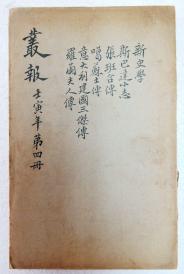 新史學
斯巴達小志
張班合傳
噶蘇士傳
意大利建國三傑傳
羅蘭夫人傳
叢報 壬寅年第四冊